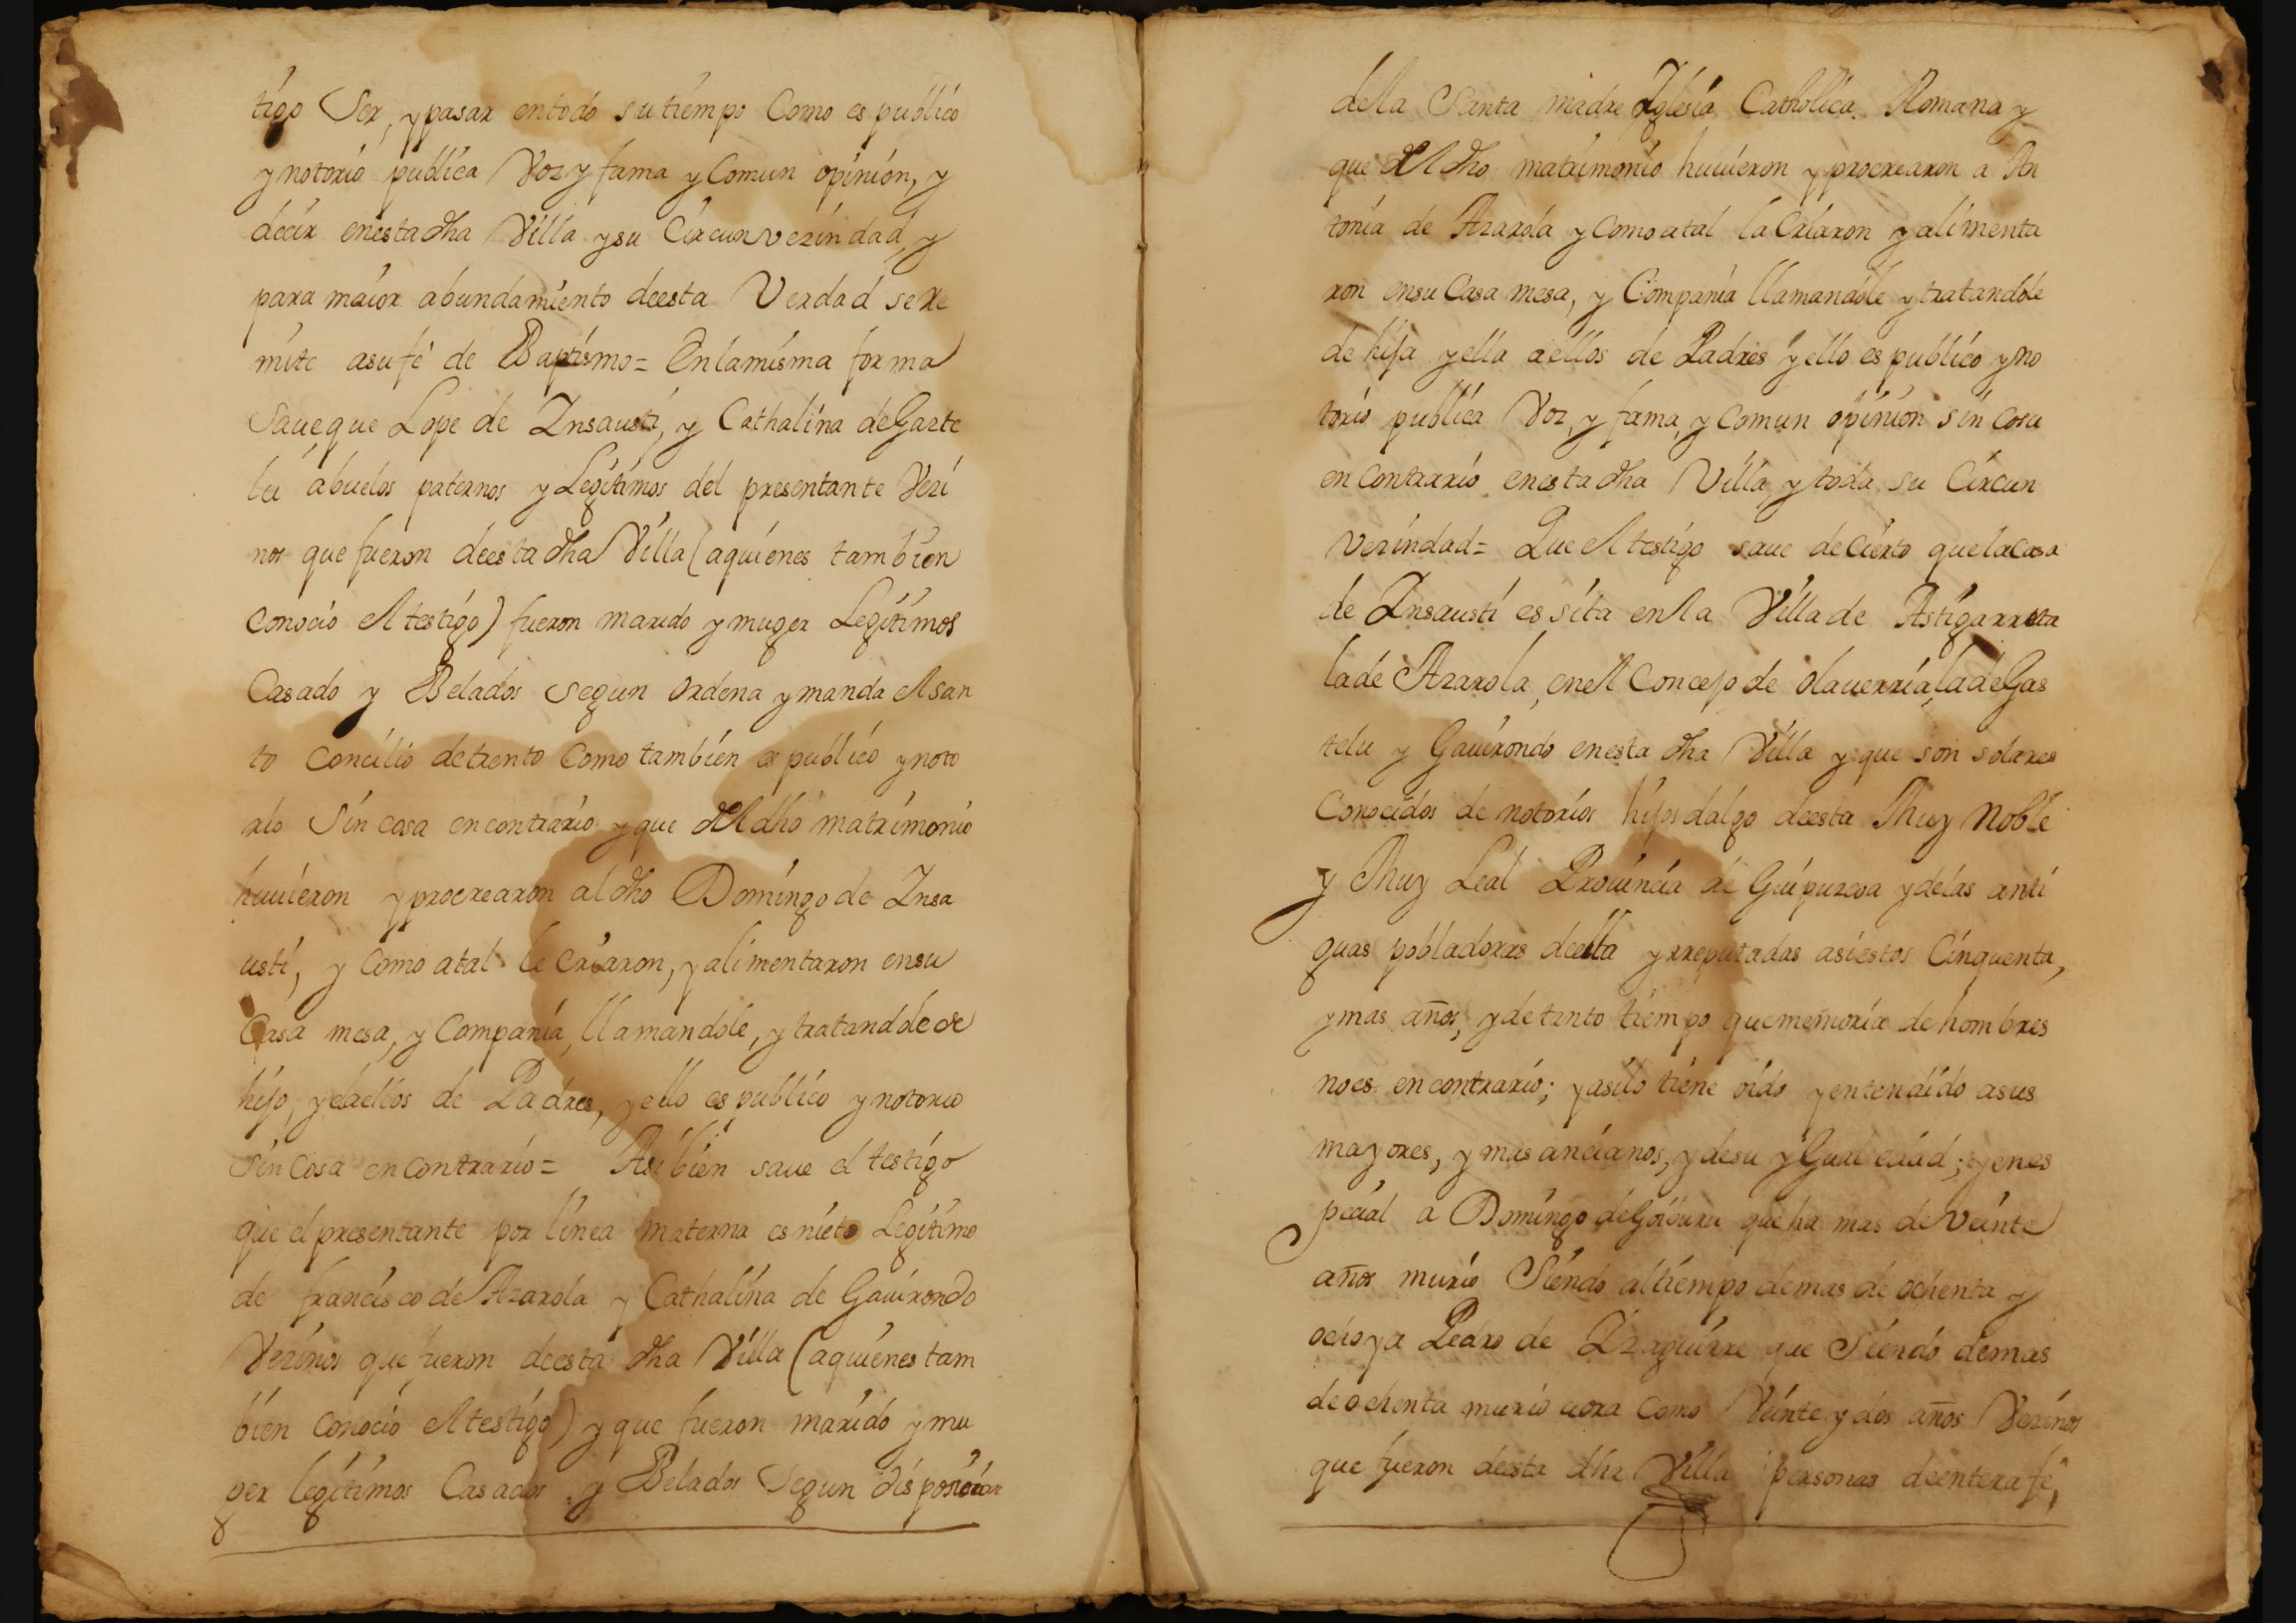 tigo Ser, y pasar entodo su tiempo Como es publico
y notorio publica Voz y fama y Comun opinion, y
decir enesta dha Villa y su Circunvezindad, y
para maior abundamiento deesta Verdad se re
mite asu fé de Baptismo = En lamisma forma
Saue que Lope de Insausti, y Cathalina de Gazte
lu abuelos paternos y Legitimos del presentante Vezi
nos que fueron deesta dha Villa (aquienes tambien
Conocio el testigo) fueron marido y muger Legitimos
Casado y Belados segun ordena y manda el san
to Concilio de trento Como tambien es publico y noto
rio Sin cosa en contrario y que del dho matrimonio
huuieron y procrearon al dho Domingo de Insa
usti, y Como atal le Criaron, y alimentaron ensu
Casa mesa, y Compania, llamandole, y tratandole de
hijo, y el aellos de Padres, y ello es publico y notorio
Sin Cosa en contrario = Asi bien saue el testigo
que el presentante por linea materna es nieto Legitimo
de francisco de Azarola y Cathalina de Gauirondo
Vezinos que fueron deesta dha Villa (aquienes tam
bien Conocio el testigo) y que fueron marido y mu
ger legitimos Casados y Belados Segun disposicion
della Santa madre Iglesia Catholica Romana y
que del dho matrimonio huuieron y procrearon a An
tonia de Azarola y Como atal la Criaron y alimenta
ron ensu Casa mesa, y Compania llamandole y tratandole
de hija y ella aellos de Padres y ello es publico y no
torio publica Voz, y fama, y Comun opinion sin Cosa
en Contrario enesta dha Villa y toda su Circun
Vezindad = Que el testigo saue de Cierto que la Casa
de Insausti es sita en la Villa de Astigarreta
la de Azarola, en el Concejo de olauerria, la de Gas
telu y Gauirondo enesta dha Villa y que son solares
Conocidos de notorios hijos dalgo deesta Muy Noble
y Muy Leal Prouincia de Guipuzcoa y delas anti
guas pobladoras deella y rreputadas asi estos Cinquenta,
y mas años, y de tanto tiempo que memoria de hombres
no es en contrario; y asilo tiene oido y entendido asus
mayores, y mas ancianos, y desu y Gual edad; y enes
pecial a Domingo de Goiburu que ha mas de Veinte
años murio Siendo al tiempo demas de ochenta y
ocho y a Pedro de Yzaguirre que Siendo demas
de ochenta murio aora Como Veinte y dos años Vezinos
que fueron deesta dha Villa personas de entera fe,